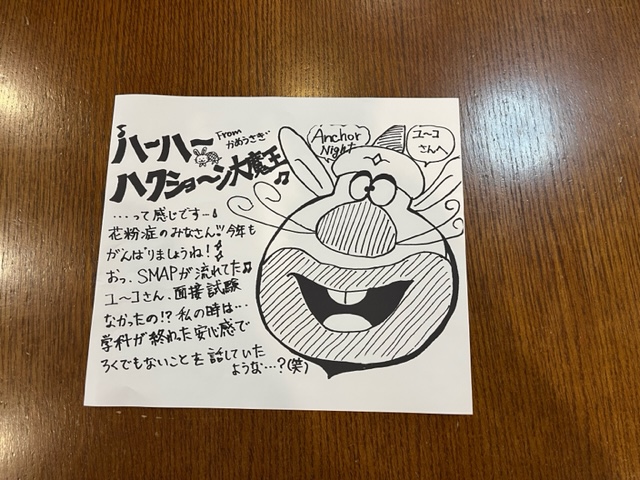 ♪ハ〜ハ〜
From
かめうさぎ
ハクショ〜ン大魔王♪
Anchor
Night
ユ〜コ
さんへ
…って感じです…
花粉症のみなさん!!今年も
がんばりましょうね!
おっ、SMAPが流れてた♫
ユ〜コさん、面接試験
なかったの!?私の時は…
学科が終わった安心感で
ろくでもないことを話していた
ような…?(笑)